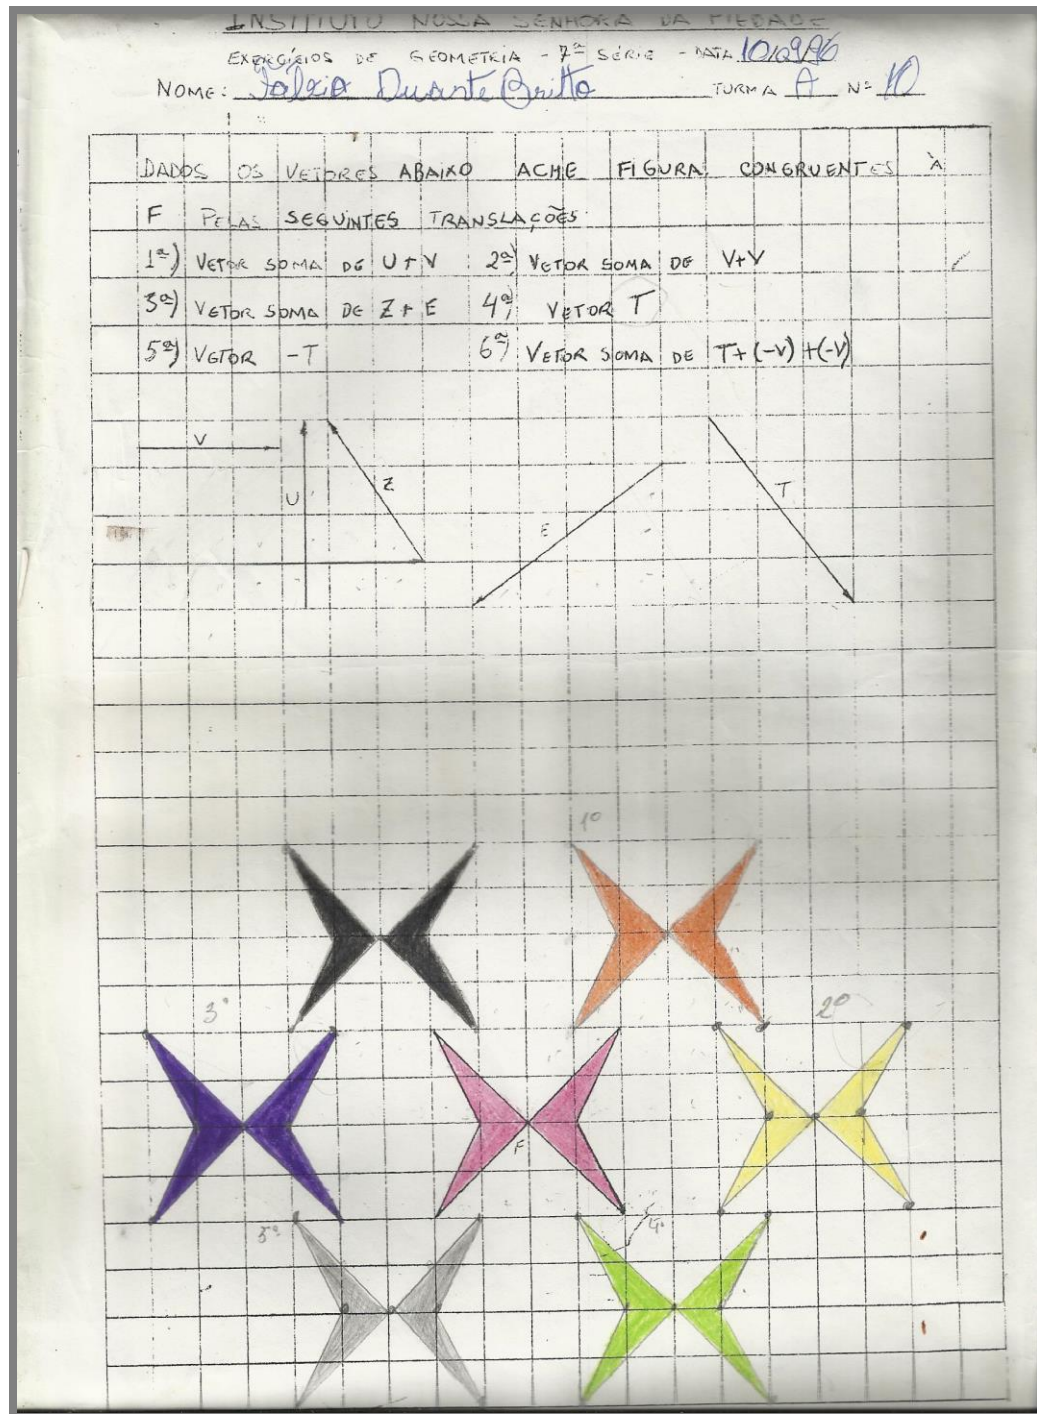 INSTITUTO NOSSA SENHORA DA PIEDADE
EXERCÍCIOS DE GEOMETRIA - 7ª SÉRIE - DATA 10/09/96
NOME: Duarte Britto TURMA A Nº 10
DADOS OS VETORES ABAIXO ACHE FIGURA CONGRUENTES À
F PELAS SEGUINTES TRANSLAÇÕES:
1ª) VETOR SOMA DE U+V 2ª) VETOR SOMA DE V+V
3ª) VETOR SOMA DE Z+E 4ª) VETOR T
5ª) VETOR -T 6ª) VETOR SOMA DE T+(-V)+(-V)
V
U
Z
E
T
1º
3º
2º
F
5º
4º